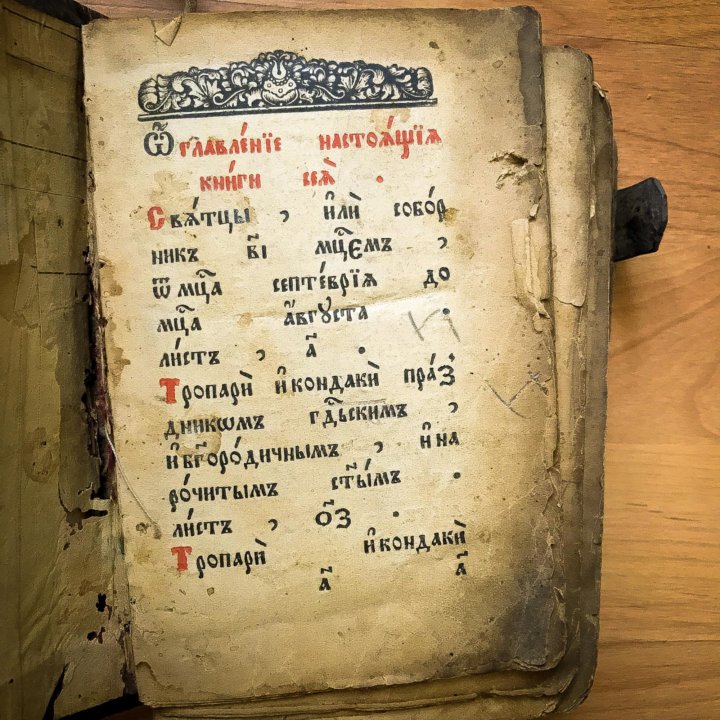 Ѿглавле́нїе настоѧ́щїѧ
кни́ги сеѧ̀ .
Свѧ́тцы , и҆лѝ собо́р
никъ в҃і мц҃емъ ,
ѿ мц҃а септе́врїѧ до
мц҃а а҆́вгꙋста .
ли́стъ , а҃ .
Тропарѝ и҆ кондакѝ пра́з
дникѡмъ гд҇ьскимъ ,
и҆ бг҃оро́дичнымъ , и҆ на
ро́читымъ ст҃ы́мъ .
ли́стъ , о҃з .
Тропарѝ и҆ кондакѝ
а҃ а҃